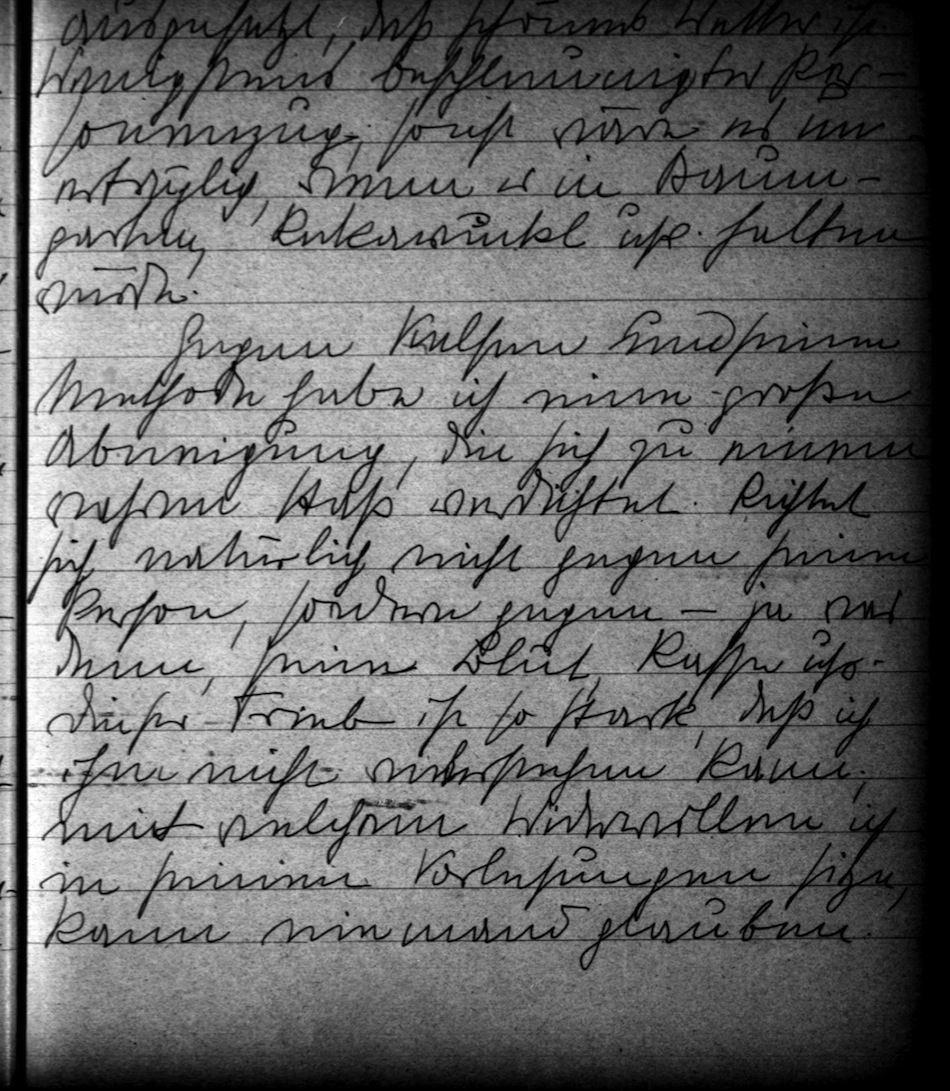 ausgesetzt, daß schönes Wetter ist.
Wenigstens beschleunigter Per-
sonenzug, sonst wäre es un-
erträglich, wenn er in Baum-
garten, Rekawinkl usf. halten
würde.
Gegen Kelsen und seine
Methode habe ich eine große
Abneigung, die sich zu einem
wahren Haß verdichtet. Richtet
sich natürlich nicht gegen seine
Person, sondern gegen – ja was
denn, seine Blut, Rasse usf.
dieser Trieb ist so stark, daß ich
ihm nicht widerstehen kann,
mit welchem Widerwillen ich
in seinen Vorlesungen sitze,
kann niemand glauben.